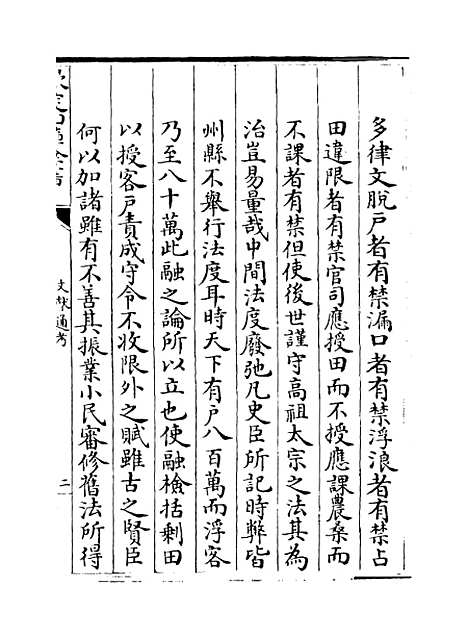 多律文脱户者有禁漏口者有禁浮浪者有禁占
田違限者有禁官司應授田而不授應課農桑而
不課者有禁但使後世謹守高祖太宗之法其為
治豈易量哉中間法度廢弛凡史臣所記時弊皆
州縣不舉行法度耳時天下有户八百萬而浮客
乃至八十萬此融之論所以立也使融檢括剩田
以授客户責成守令不收限外之賦雖古之賢臣
何以加諸雖有不善其振業小民審修舊法所得
文獻通考
二